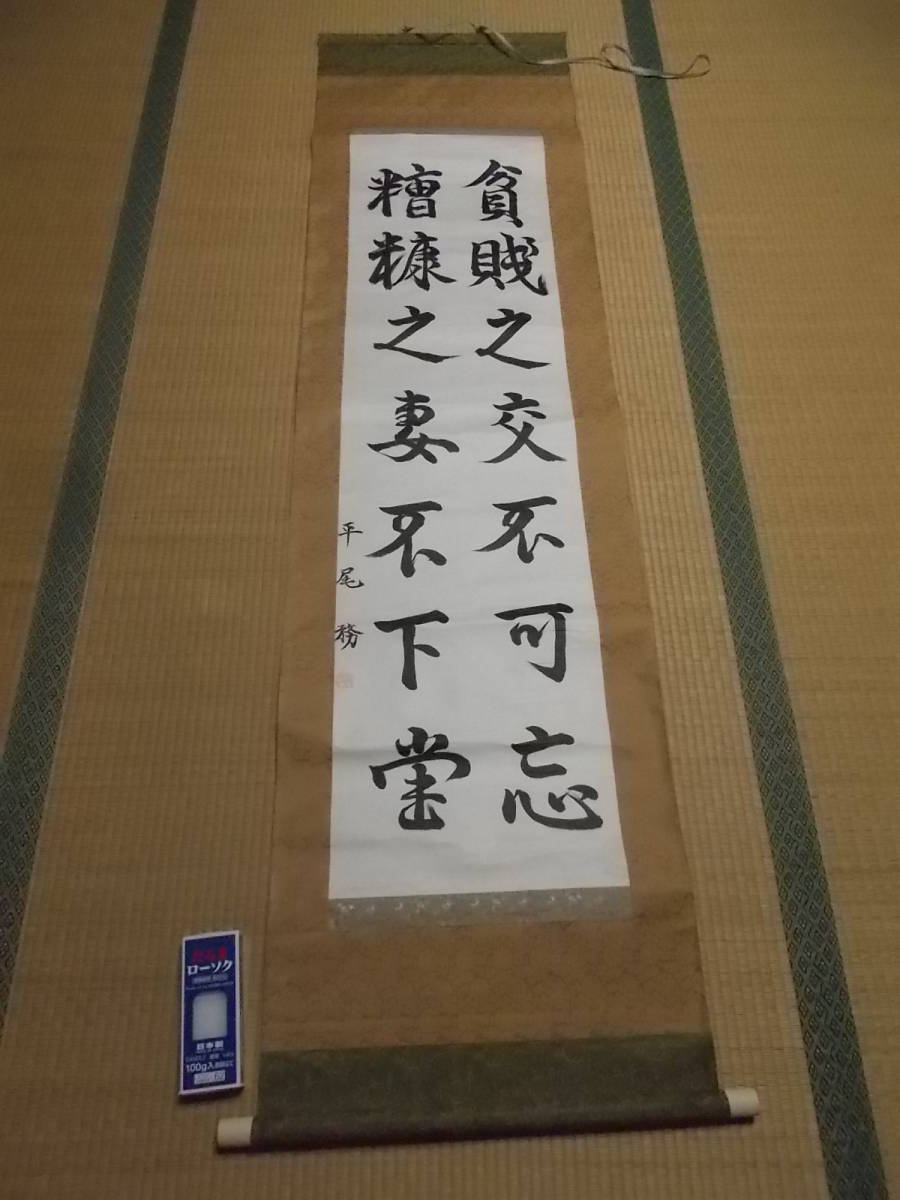 貧賤之交不可忘
糟糠之妻不下堂
平尾務
ローソク
日本製
100g入